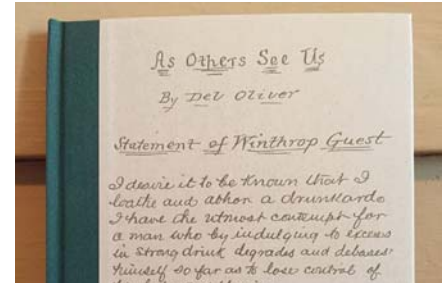 As Others See Us
By Dev Oliver
Statement of Winthrop Guest
I desire it to be known that I
loathe and abhor a drunkard.
I have the utmost contempt for
a man who by indulging to excess
in strong drink degrades and debases
himself so far as to lose control of